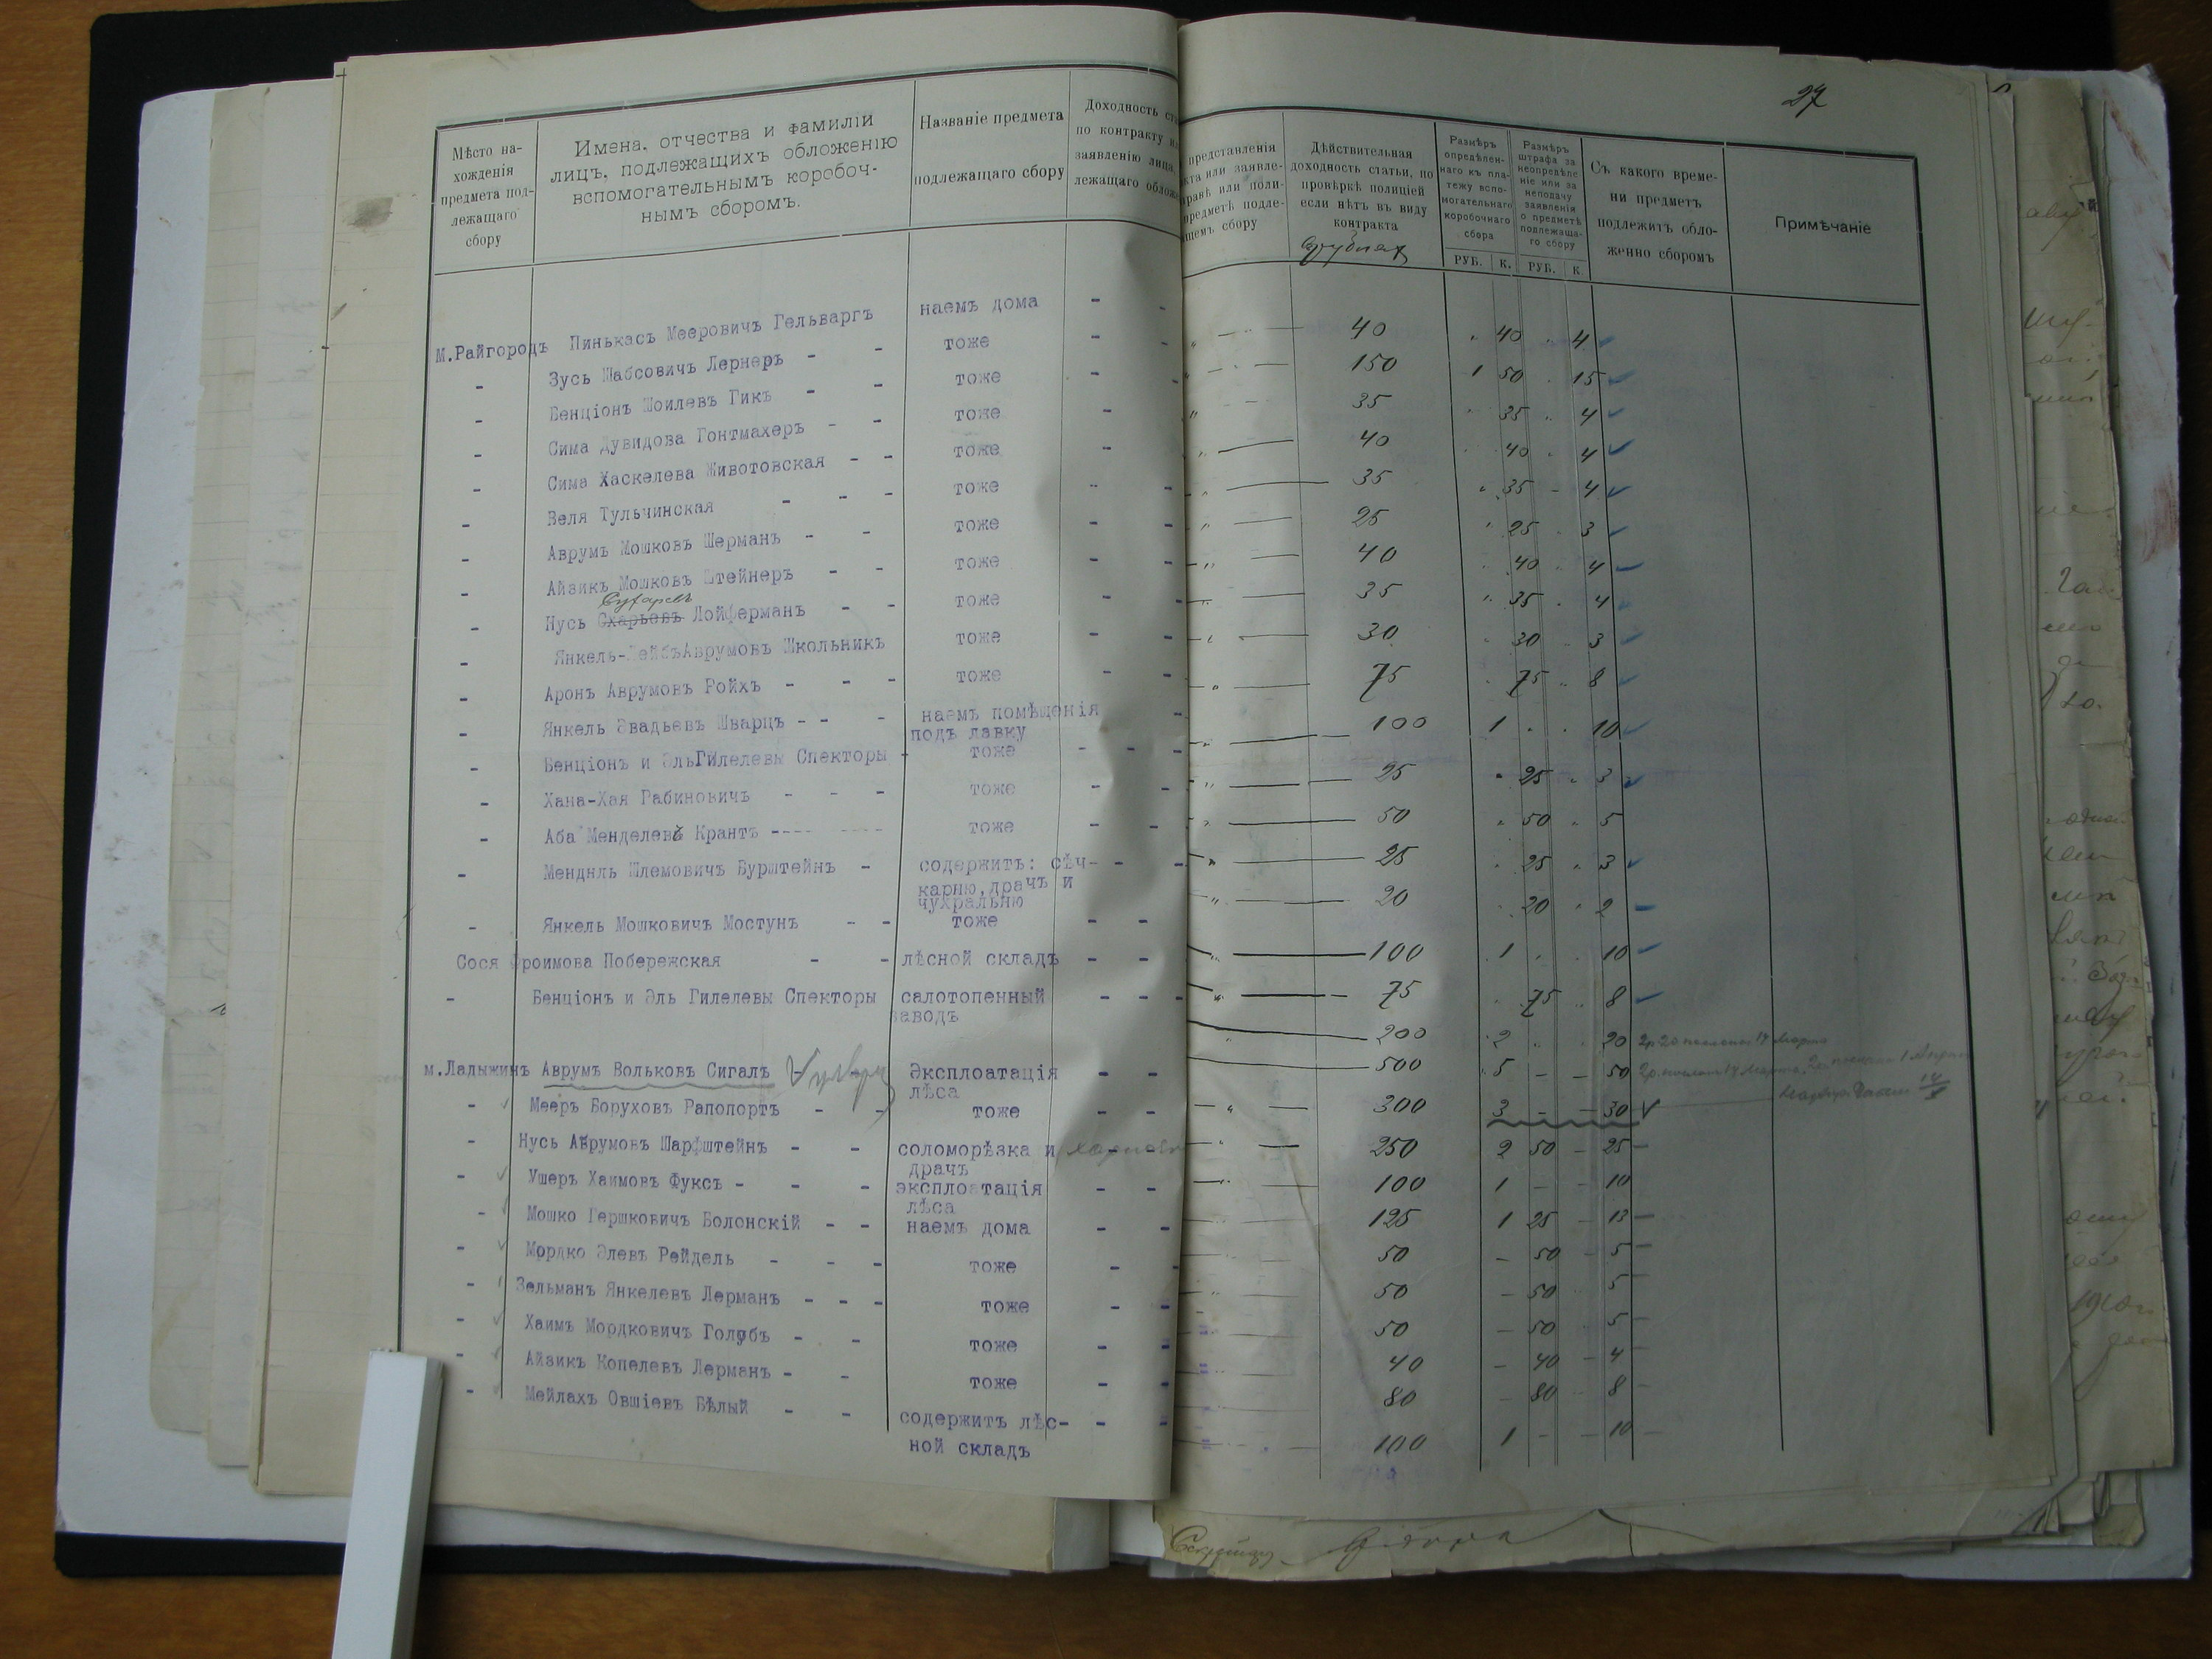 27
Мѣсто на-
хожденія
предмета под-
лежащаго
сбору
Имена, отчества и фамиліи
лицъ, подлежащихъ обложенію
вспомогательнымъ коробоч-
нымъ сборомъ.
Названіе предмета
подлежащаго сбору
Доходность
по контракту
заявленію лица
лежащаго
представленія
или заявле-
или поли-
предметѣ подле-
сбору
Дѣйствительная
доходность статьи, по
провѣркѣ полиціей
если нѣтъ въ виду
контракта
Размѣръ
опредѣлен-
наго къ пла-
тежу вспо-
могательнаго
коробочнаго
сбора
РУБ. К.
Размѣръ
штрафа за
неопредѣле
ніе или за
неподачу
заявленія
о предметѣ
подлежаща-
го сбору
РУБ. К.
Съ какого време-
ни предметъ
подлежитъ обло-
женію сборомъ
Примѣчаніе
м.Райгородъ Пинькасъ Мееровичъ Гельваргъ наемъ дома - - 40 40 4
- Зусь Шабсовичъ Лернеръ - - тоже - - 150 1 50 15
- Бенціонъ Шоилевъ Гикъ - - тоже - - 35 35 4
- Сима Дувидова Гонтмахеръ - - тоже - 40 40 4
- Сима Хаскелева Животовская - - тоже - 35 35 4
- Веля Тульчинская - - - тоже - - 25 25 3
- Аврумъ Мошковъ Шерманъ - - тоже - - 40 40 4
- Айзикъ Мошковъ Штейнеръ - - тоже - - 35 35 4
Сухаревъ
- Нусь Схарьевъ Лойферманъ - - тоже - - 30 30 3
- Янкель-Лейбъ Аврумовъ Школьникъ тоже - - 75 75 8
- Аронъ Аврумовъ Ройхъ - - - тоже - - 100 1 10
- Янкель Эвадьевъ Шварцъ - - - наемъ помѣщенія
подъ лавку - 25 25 3
- Бенціонъ и Эль Гилелевы Спекторы - тоже - - - 50 50 5
- Хана-Хая Рабиновичъ - - - тоже - - 25 25 3
- Аба Менделевъ Крантъ ---- ---- тоже - - 20 20 2
- Мендиль Шлемовичъ Бурштейнъ - содержитъ: сѣч-
карню, драчъ и
чухральню - - 100 1 10
- Янкель Мошковичъ Мостунъ - - тоже - - 75 75 8
Сося Фроимова Побережская - - лѣсной складъ - - 200 2 20
- Бенціонъ и Эль Гилелевы Спекторы салотопенный
заводъ - - - 500 5 - - 50
м.Ладыжинъ Аврумъ Вольковъ Сигалъ Эксплоатація
лѣса - - 300 3 - - 30
- Мееръ Боруховъ Рапопортъ - - тоже - - 250 2 50 - 25
- Нусь Аврумовъ Шарфштейнъ - - соломорѣзка и
драчъ 100 1 - - 10
- Ушеръ Хаимовъ Фуксъ - - - эксплоатація
лѣса - - 125 1 25 - 13
- Мошко Гершковичъ Болонскій - - наемъ дома - - 50 - 50 - 5
- Мордко Элевъ Рейдель - - - тоже - - 50 - 50 5
- Зельманъ Янкелевъ Лерманъ - - - тоже - - 50 - 50 - 5
- Хаимъ Мордковичъ Голубъ - - тоже - - 40 - 40 - 4
- Айзикъ Копелевъ Лерманъ - - тоже - - 80 - 80 8
- Мейлахъ Овшіевъ Бѣлый - - содержитъ лѣс-
ной складъ - - 100 1 - - 10